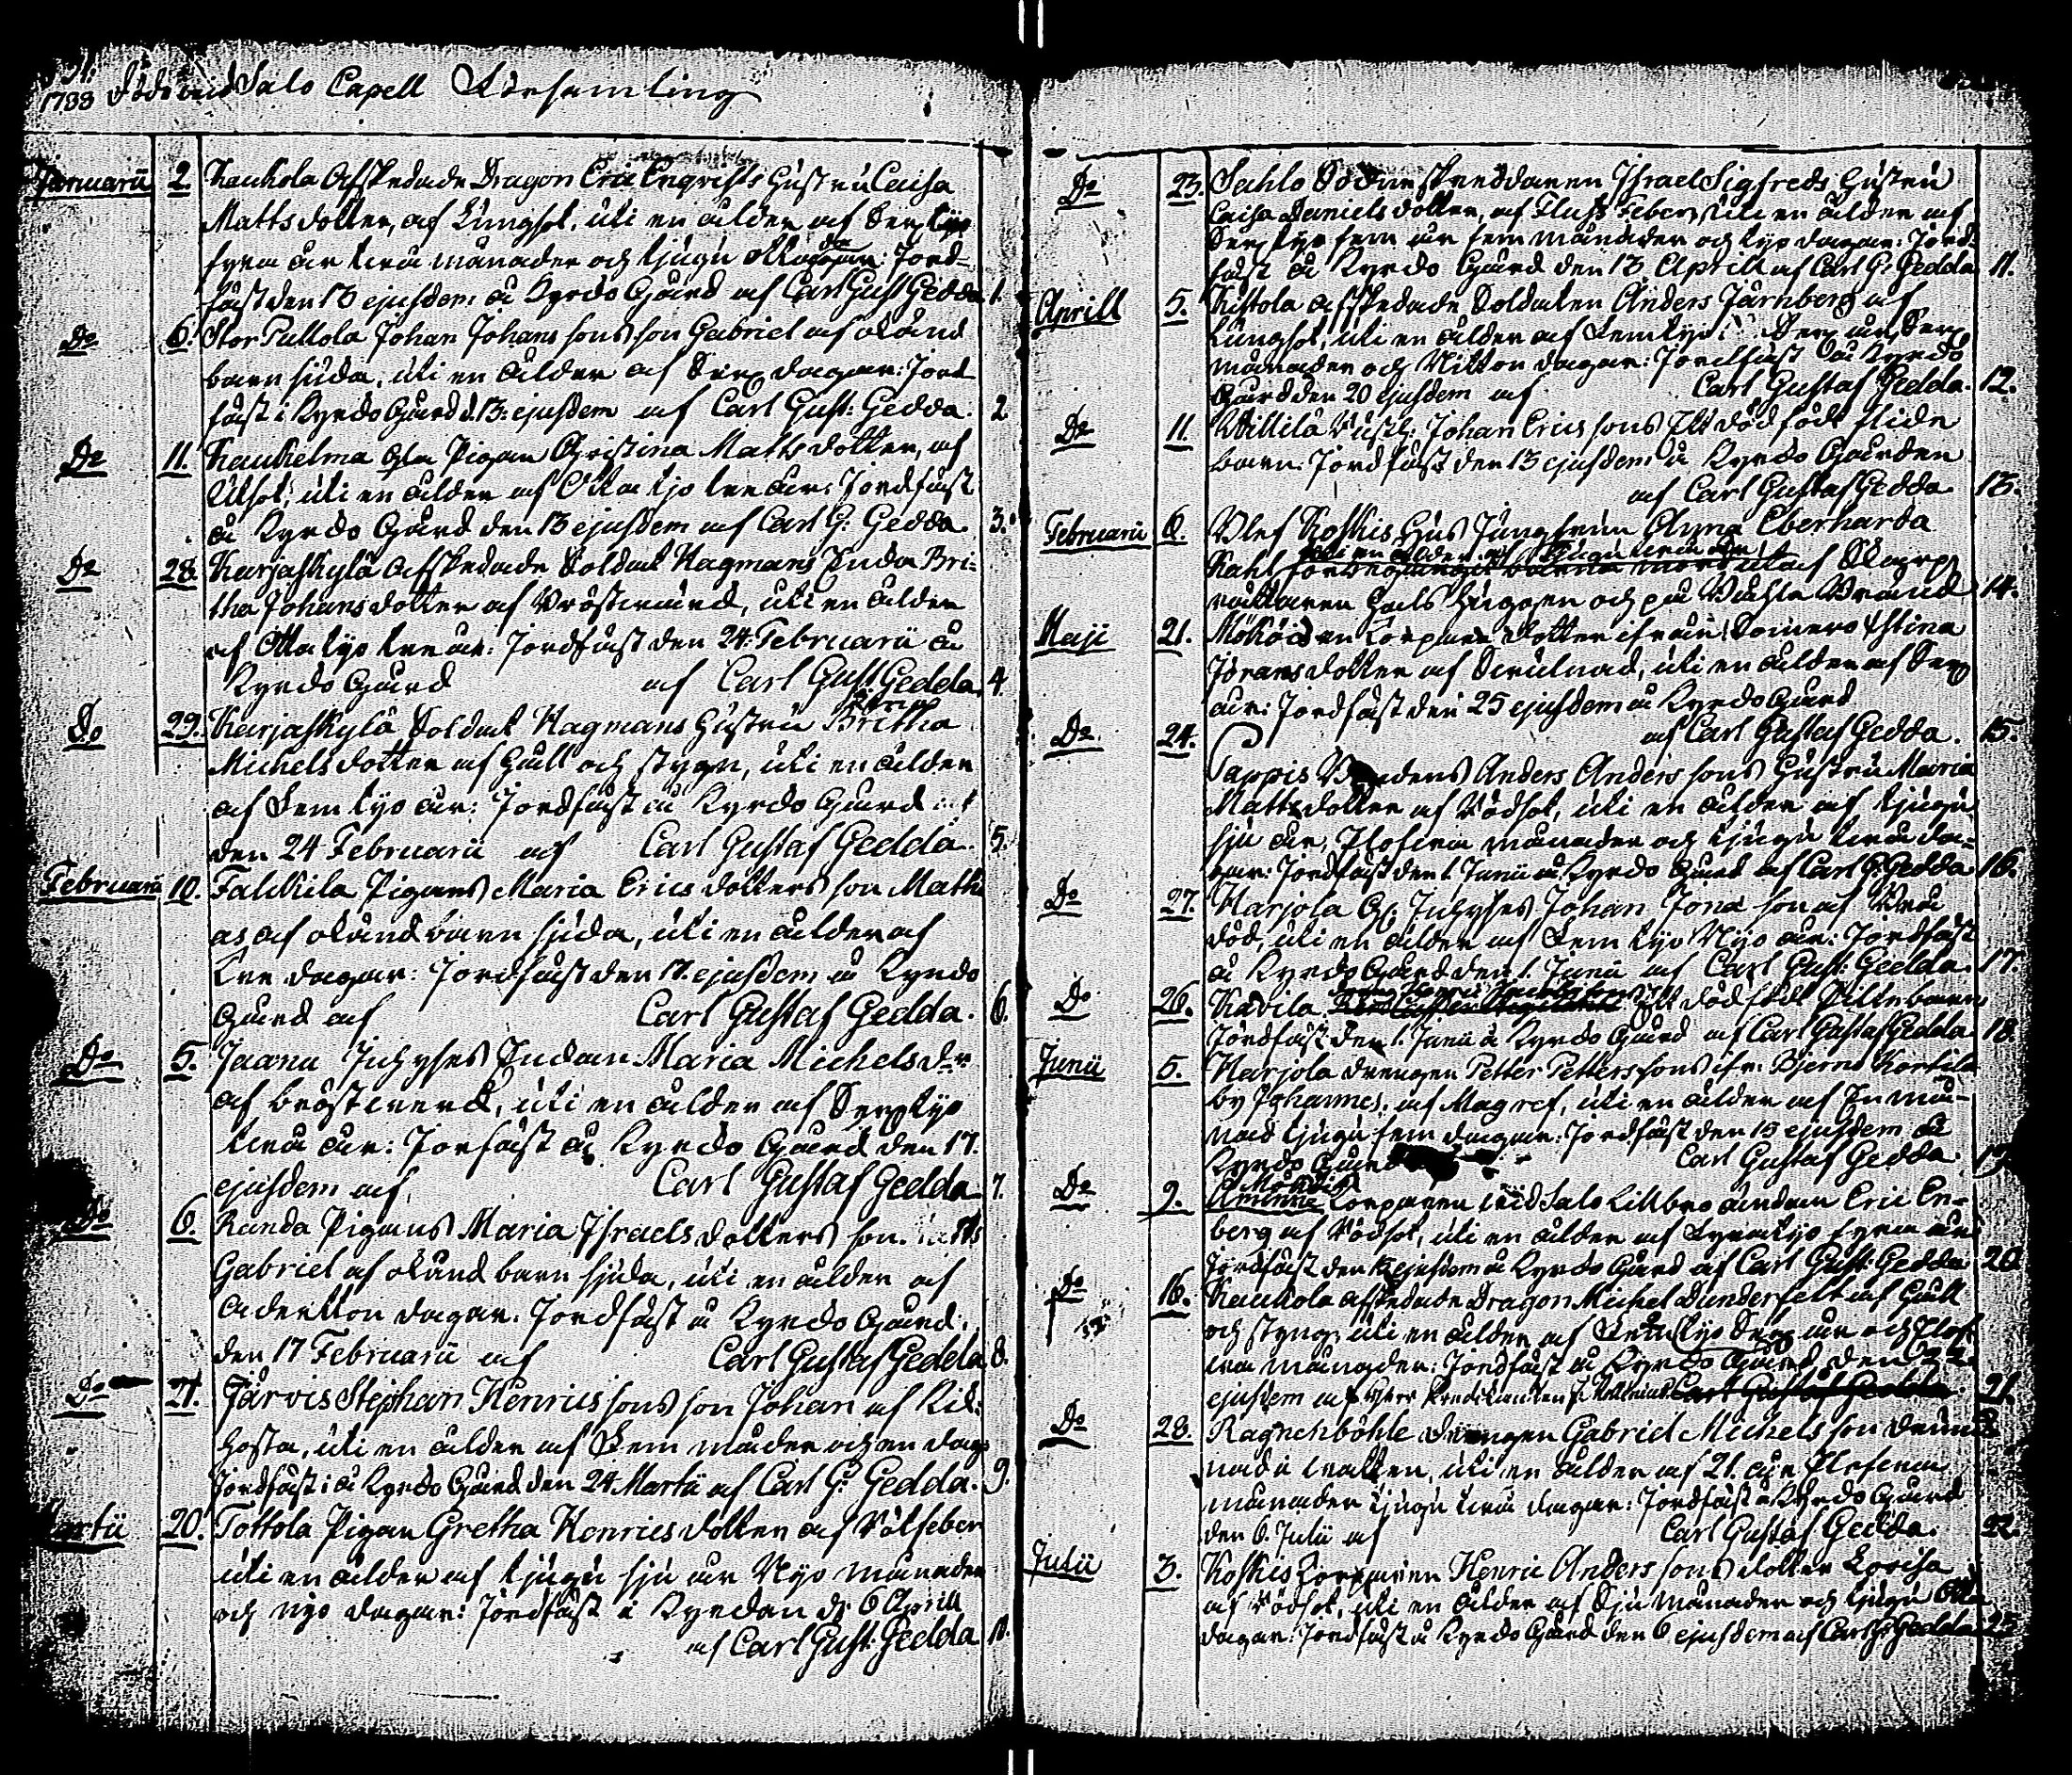 1788 Döde wid Salo Capell Församling
Januarii 2. Kaukola Afskedade Dragon Eric Engvists Hustru Caisa
Matts dotter, af Lungsot, uti en ålder af Sextijo
fyra år två månader och tjugu åtta dagar: Jord-
fäst den 13 ejusdem å Kyrko Gård af Carl Gust Gedda 1.
Do 6. Stor Pullola Johan Johans sons son Gabriel af okänd
barnsjuka, uti en ålder af Sex dagar: Jord
fäst i Kyrko Gård d. 13. ejusdem af Carl Gust: Gedda. 2
Do 11. Kaukelma Gla Pigan Christina Matts dotter, af
Lungsot, uti en ålder af Otta tijo tre år. Jordfäst
å Kyrko Gård den 13 ejusdem af Carl G: Gedda. 3.
Do 28. Karjaskylä Afskedade Soldat Hagmans Enka Bri-
tha Johans dotter af Bröstwärk, uti en ålder
af Otta tijo tre år. Jordfäst den 24. Februarii å
Kyrko Gård af Carl Gust: Gedda. 4.
Do 29. Karjaskylä Soldat Hagmans Hustru Britha
Michels dotter af Håll och styng, uti en ålder
af Fem tijo år: Jordfäst å Kyrko Gård
den 24 Februarii af Carl Gustaf Gedda. 5.
Februarii 10. Falckila Pigans Maria Erics dotters son Mathi
as af okänd barnsjuka, uti en ålder af
tre dagar: Jordfäst den 17. ejusdem å Kyrko
Gård af Carl Gustaf Gedda. 6.
Do 5. Jaanu Inhyses Enkan Maria Michels dr.
af bröstwerck, uti en ålder af Sextijo
två år: Jorfäst å Kyrko Gård den 17.
ejusdem af Carl Gustaf Gedda 7.
Do 6. Randa Pigans Maria Israels dotters son
Gabriel af okänd barnsjuka, uti en ålder af
Aderton dagar. Jordfäst å Kyrko Gård
den 17 Februarii af Carl Gustaf Gedda 8.
Do 21. Järvis Stephan Henrics sons son Johan af Kik-
hosta, uti en ålder af Fem månader och en dag
Jordfäst i å Kyrko Gård den 24. Martii af Carl G: Gedda. 9.
Martii 20. Tottola Pigan Gretha Henrics dotter af Rötfeber
uti en ålder af tjugu sju år Nijo månader
och nijo dagar: Jordfäst i Kyrckan d. 6 Aprill
af Carl Gust: Gedda 10.
Do 23. Sahlo Israel Sigfreds Hustru
Caisa Daniels dotter, af Fluss Feber, uti en ålder af
Sextijo fem år fem månader och tijo dagar: Jord-
fäst å Kyrko Gård den 13 Aprill af Carl G: Gedda 11.
Aprill 5. Kistola afskedade Soldaten Anders Järnberg af
Lungsot, uti en ålder af Femtijo Sex år, Sex
månader och Nitton dagar: Jordfäst å Kyrko
Gård den 20 ejusdem af Carl Gustaf Gedda. 12.
Do 11. Willilä Rusth: Johan Erics sons Ett dödfödt flicke
barn. Jordfäst den 13 ejusdem å Kyrko Gården
af Carl Gustaf Gedda. 13.
Februarii 6. Ulef Koskis Hus Jungfrun Anna Eberharda
Kahl af Skarp
rättaren Hals huggen och på Båhle Bränd 14.
Maji 21. Mököis en Torpare dotter ifrån Somero Stina
Jörans dotter af uti en ålder af Sex
år: Jordfäst den 25 ejusdem å Kyrko Gård
af Carl Gustaf Gedda. 15.
Do 24. Pappis Bondens Anders Anders sons Hustru Maria
Matts dotter af Rödsot, uti en ålder af tjugu
sju år, Elofwa månader och tjugu två da-
gar: Jordfäst den 1. Junii å Kyrko Gård af Carl G: Gedda 16.
Do 27. Marjola Gl: Inhyses Johan Jona son af Brå
död, uti en ålder af Femtijo Nijo år: Jordfäst
å Kyrko Gård den 1. Junii af Carl Gust: Gedda. 17.
Do 26. Kavila Ett död födt Pilte barn
Jordfäst den 1. Junii å Kyrko Gård af Carl Gustaf Gedda 18.
Junii 5. Marjola drengen Petter Petters sons ifr. Bjerno Kortila
by Johannes, af Magref, uti en ålder af En må-
nad tjugu fem dagar: Jordfäst den 15 ejusdem å
Kyrko Gård Carl Gustaf Gedda. 19
Do 9. Torparen wid Salo Lillbro ändan Eric En-
berg af Rödsot, uti en ålder af Fyratijo fyra år
Jordfäst den ejusdem å Kyrko Gård af Carl Gust: Gedda 20
Do 16. Kaukola afskedade Dragon Michel Dunderfelt af Håll
och styng, uti en ålder af Femtijo Sex år och Elof
wa månader: Jordfäst å Kyrko Gård den 22
ejusdem af Carl Gustaf Gedda. 21.
Do 28. Ragnehböhle drengen Gabriel Michels son drunck
nad i watten, uti en ålder af 21. år Elofwa
månader tjugu två dagar: Jordfäst å Kyrko Gård
den 6. Julii af Carl Gustaf Gedda. 22.
Julii 3. Koskis Torparen Henric Anders sons dotter Lovisa
af Rödsot, uti en ålder af Sju månader och tjugu åtta
dagar: Jordfäst å Kyrko Gård den 6 ejusdem af Carl G: Gedda 23